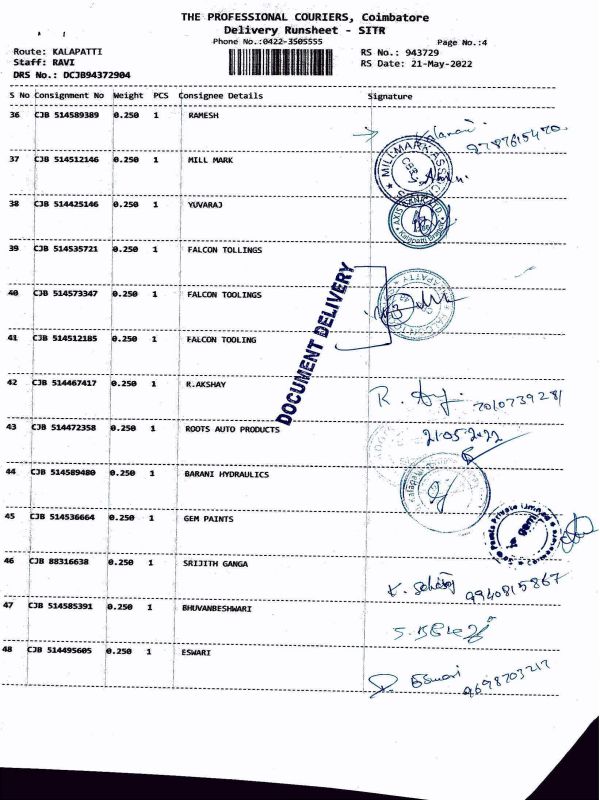 THE PROFESSIONAL COURIERS, Coimbatore
Delivery Runsheet - SITR
Phone No.:0422-3505555
Page No.:4
Route: KALAPATTI
RS No.: 943729
Staff: RAVI
RS Date: 21-May-2022
DRS No.: DCJB94372904
S No Consignment No Weight PCS Consignee Details Signature
36 CJB 514589389 0.250 1 RAMESH
37 CJB 514512146 0.250 1 MILL MARK
38 CJB 514425146 0.250 1 YUVARAJ
39 CJB 514535721 0.250 1 FALCON TOLLINGS
40 CJB 514573347 0.250 1 FALCON TOOLINGS
41 CJB 514512185 0.250 1 FALCON TOOLING
DOCUMENT DELIVERY
42 CJB 514467417 0.250 1 R.AKSHAY
43 CJB 514472358 0.250 1 ROOTS AUTO PRODUCTS
21.05.2022
44 CJB 514589480 0.250 1 BARANI HYDRAULICS
45 CJB 514536664 0.250 1 GEM PAINTS
46 CJB 88316638 0.250 1 SRIJITH GANGA
9940815867
47 CJB 514585391 0.250 1 BHUVANBESHWARI
48 CJB 514495605 0.250 1 ESWARI
Eswari